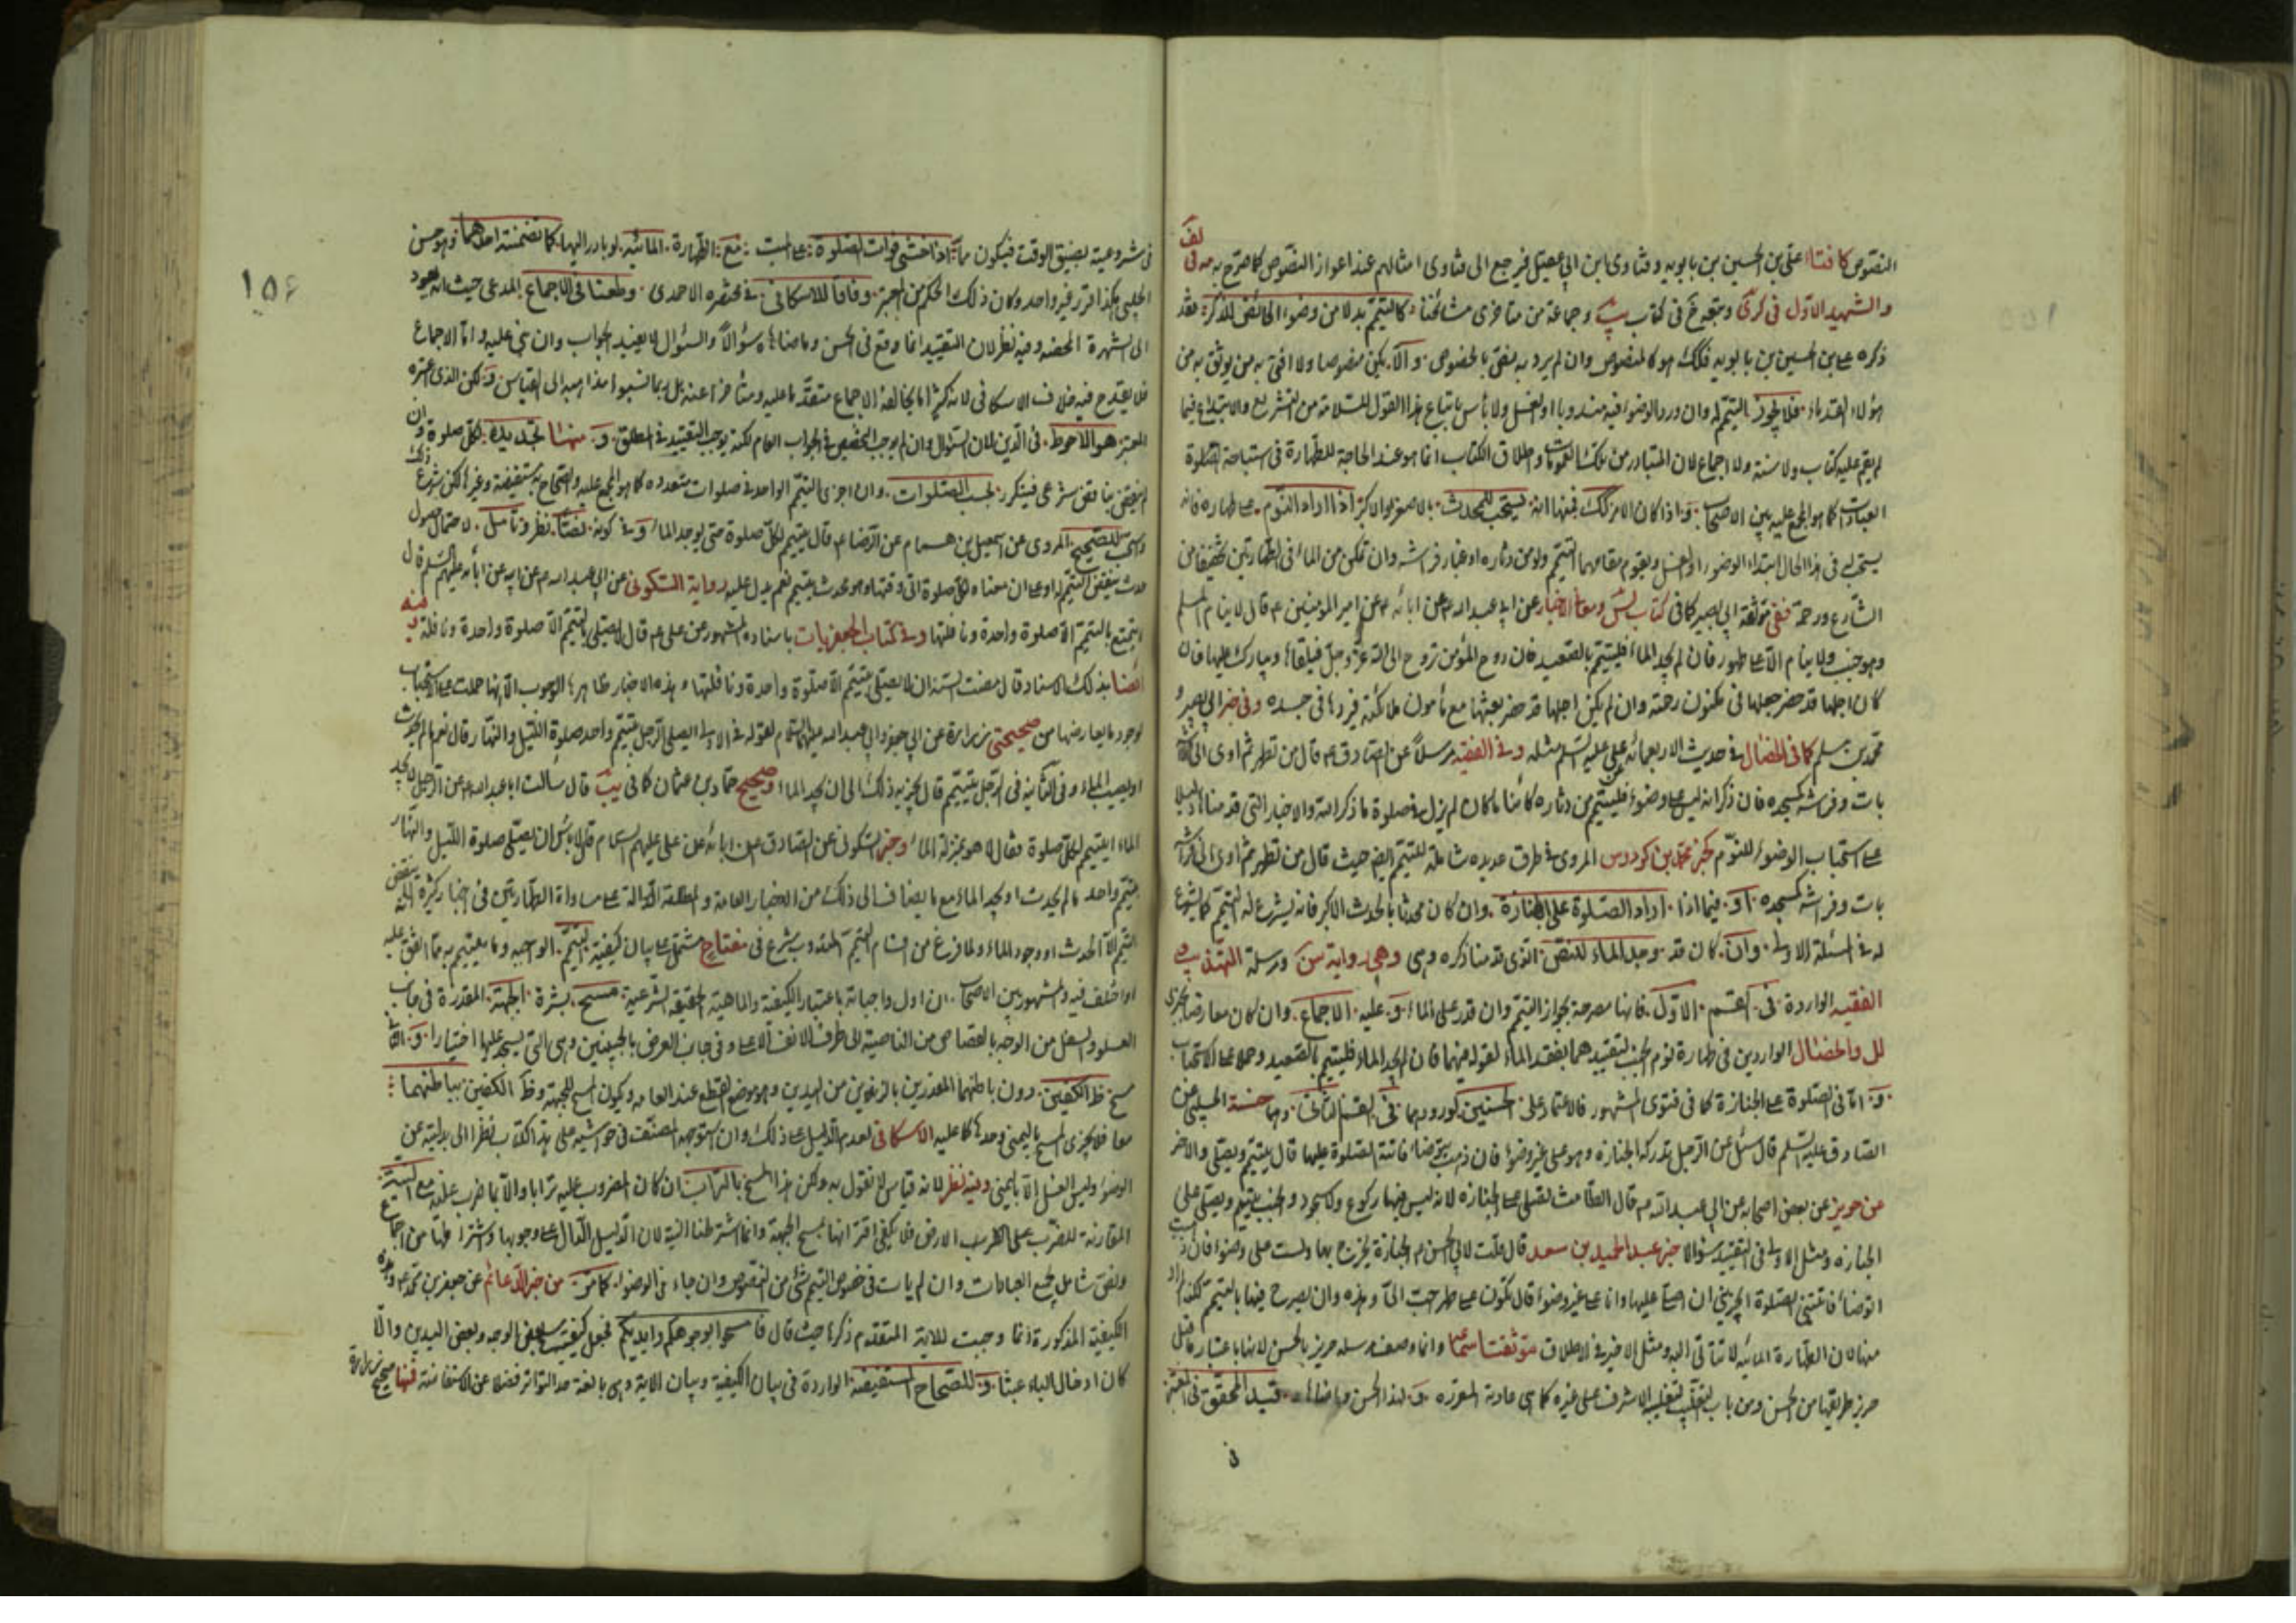 النصوص كافتاء علي بن الحسين بن بابويه وفتاوى ابن ابي عقيل فيرجع الى فتاوى امثالهم عند اعواز النصوص كما صرح به في لف
والشهيد الاول في كرى وجماعة من متاخري مشائخنا كالتيمم بدلا من وضوء الحائض للذكر فقد
ذكره علي بن الحسين بن بابويه فلك هو كالمنصوص وان لم يرد به نص بالخصوص والا يكن منصوصا ولا افتى به من يوثق به من
هؤلاء القدماء فلا يجوز التيمم له وان ورد الوضوء فيه مندوبا او الغسل ولا بأس باتباع هذا القول للسلامة من التشريع والابتداع فيما
لم يقم عليه كتاب ولا سنة ولا اجماع لان المتبادر من تلك العمومات واطلاق الكتاب انما هو عند الحاجة للطهارة في استباحة الصلوة
العبادات كما هو المجمع عليه بين الاصحاب واذا كان الامر كك فمنها انه يستحب للمحدث بالاصغر او الاكبر اذا اراد النوم على طهارة فانه
يستحب له في هذا الحال ابتداء الوضوء او الغسل ويقوم مقامهما التيمم ولو من دثاره او غبار فرشه وان تمكن من الماء في الطهارتين تخفيفا من
الشارع ورحمة ففي موثقة ابي بصير كما في كتاب ومعاني الاخبار عن ابي عبد الله عن ابائه عن امير المؤمنين قال لا ينام المسلم
وهو جنب ولا ينام الا على طهور فان لم يجد الماء فليتيمم بالصعيد فان روح المؤمن تروح الى الله عز وجل فيلقاها ويبارك عليها فان
كان اجلها قد حضر جعلها في مكنون رحمته وان لم يكن اجلها قد حضر بعثها مع ملائكته فيردها في جسده وفي خبر ابي بصير و
محمد بن مسلم كما في الخصال في حديث الاربعمائة عن علي عليه السلم مثله وفي الفقيه مرسلا عن الصادق قال من تطهر ثم اوى الى فراشه
بات وفرشه كمسجده فان ذكر انه ليس على وضوء فليتيمم من دثاره كائنا ما كان لم يزل في صلوة ما ذكر الله والاخبار التي قدمناها دليلا
على استحباب الوضوء للنوم كخبر محمد بن كردوس المروي في طرق عديدة شاملة للتيمم ايضا حيث قال من تطهر ثم اوى الى فراشه
بات وفراشه كمسجده او فيما اذا اراد الصلوة على الجنازة وان كان محدثا بالحدث الاكبر فانه يشرع له التيمم كما يشرع
له في المسئلة الاولى وان كان قد وجد الماء للنص الذي قدمنا ذكره وهي رواية ومرسلة التهذيب و
الفقيه الواردة في القسم الاول فانها مصرحة بجواز التيمم وان قدر على الماء وعليه الاجماع وان كان معارضا بخبري
لل والخصال الواردين في طهارة نوم الجنب لتقييدهما بفقد الماء لقوله فيهما فان لم يجد الماء فليتيمم بالصعيد وحملا على الاستحباب
واما في الصلوة على الجنازة كما في فتوى المشهور فالاعتماد على الحسنين كورودهما في القسم الثاني وهما حسنة الحلبي عن
الصادق عليه السلم قال سئل عن الرجل تدركه الجنازة وهو على غير وضوء فان ذهب يتوضأ فاتته الصلوة عليها قال يتيمم ويصلي والاخر
عن حريز عن بعض اصحابه عن ابي عبد الله قال الطامث تصلي على الجنازة لانه ليس فيها ركوع ولا سجود والجنب يتيمم ويصلي على
الجنازة ومثل الاولى في التقييد سؤالا خبر عبد الحميد بن سعد قال قلت لابي الحسن الجنازة يخرج بها ولست على وضوء فان ذهبت
اتوضأ فاتتني الصلوة ايجزيني ان اصلي عليها وانا على غير وضوء قال تكون على طهر احب الي وهذه وان لم يصرح فيها بالتيمم لكنه المراد
منها لان الطهارة المائية لا تتأتى اليه ومثل الاخير في الاطلاق موثقتا سماعة وانما وصف مرسله حريز بالحسن لانها باعتبار قبل
حريز طريقها من الحسن ومن باب التغليب لتغليب الاشرف على غيره كما هي عادته المعروفة ولهذا الحسن وما ضاهاه قيد المحقق في المعتبر
في شروعيته بضيق الوقت فيكون مما اذا خشي فوات الصلوة على الميت مع الطهارة المائية لو بادر اليها كما تضمنته احدهما وهو حسن
الحلبي هكذا قرر فيه واحد وكان ذلك الحكم من المعتبر وفاقا للاسكافي في مختصره الاحمدي وطعنا في الاجماع المدعى حيث انه يعود
الى الشهرة المحضة وفيه نظر لان التقييد انما وقع في الحسن وما ضاهاه سؤالا والسؤال لا يقيد الجواب وان بني عليه واما الاجماع
فلا يقدح فيه خلاف الاسكافي لانه كثيرا ما يخالف الاجماع متقدما عليه ومتأخرا عنه بل ربما نسبوا مذاهبه الى القياس ولكن الذي اعتبره
المعتبر هو الاحوط في الدين لان السؤال وان لم يوجب التخصيص في الجواب العام لكنه يوجب التقييد في المطلق ومنها تجديده لكل صلوة وان
لم ينقض بناقض شرعي فيتكرر بحسب الصلوات وان اجزى التيمم الواحد في صلوات متعددة كما هو المجمع عليه والصحاح به مستفيضة وغيرها لكن شرع ذلك
واستحب للصحيح المروي عن اسمعيل بن همام عن الرضا قال يتيمم لكل صلوة حتى يوجد الماء وفي كونه نصا نظر وتأمل لاحتمال حصول
حدث ينقض التيمم او على ان معناه لكل صلوة اتى وقتها وهو محدث يتيمم نعم يدل عليه رواية السكوني عن ابي عبد الله عن ابيه عن ابائه عليهم السلم قال لا
يتمتع بالتيمم الا صلوة واحدة ونافلتها وفي كتاب الجعفريات باسناده المشهور عن علي قال لا يصلي بالتيمم الا صلوة واحدة ونافلة وفيه
ايضا بذلك الاسناد قال مضت السنة ان لا يصلي بتيمم الا صلوة واحدة ونافلتها وهذه الاخبار ظاهرها الوجوب الا انها حملت على الاستحباب
لوجود ما يعارضها من صحيحتي زرارة عن ابي جعفر وابي عبد الله عليهما السلام لقوله في الاولى ايصلي الرجل بتيمم واحد صلوة الليل والنهار قال نعم ما لم يحدث
او يصيب الماء وفي الثانية في الرجل يتيمم قال يجزيه ذلك الى ان يجد الماء وصحيح حماد بن عثمان كما في يب قال سألت ابا عبد الله عن الرجل لا يجد
الماء ايتيمم لكل صلوة فقال لا هو بمنزلة الماء وخبر السكوني عن الصادق عن ابائه عن علي عليهم السلام قال لا بأس ان يصلي صلوة الليل والنهار
بتيمم واحد ما لم يحدث او يجد الماء مع ما يضاف الى ذلك من الاخبار العامة والمطلقة الدالة على مساواة الطهارتين في اخبار كثيرة انه لا ينقض
التيمم الا الحدث او وجود الماء ولما فرغ من اقسام التيمم المندوب شرع في مفتاح مشتمل على بيان كيفية التيمم الواجبه وما يتيمم به مما اتفق عليه
او اختلف فيه والمشهور بين الاصحاب ان اول واجباته باعتبار الكيفية والماهية الحقيقة الشرعية مسح بشرة الجبهة المقدرة في جانب
العلو والسفل من الوجه بالقصاص من الناصية الى طرف الانف الاعلى وفي جانب العرض بالجبينين وهي التي يسجد عليها اختيارا والثاني
مسح ظهر الكفين دون باطنهما المعذرين بالزندين من اليدين وهو موضع القطع عند العامه ويكون المسح للجبهة وظهر الكفين بباطنهما
معا فلا يجزي المسح باليمنى وحدها كما عليه الاسكافي لعدم الدليل على ذلك وان استوجهه المصنف في حواشيه على هذا الكتاب نظرا الى بدليته عن
الوضوء وليس الغسل الا باليمنى وفيه نظر لانه قياس لا نقول به ولكن هذا المسح بالتراب ان كان المضروب عليه ترابا والا بما ضرب عليه مع النية
المقارنة للضرب على الارض فلا يكفي اقترانها بمسح الجبهة وانما اشترطنا النية لان الدليل الدال على وجوبها واشتراطها من اجماع
ونص شامل لجميع العبادات وان لم يات في خصوص التيمم شئ من النصوص وان جاء في الوضوء كما مر من خبر الدعائم عن جعفر بن محمد وهذه
الكيفية المذكورة انما وجبت للاية المتقدم ذكرها حيث قال فامسحوا بوجوهكم وايديكم فجعل كيفيته مسح بعض الوجه وبعض اليدين والا
كان ادخال الباء عبثا وللصحاح المستفيضة الواردة في بيان الكيفية وبيان الاية وهي بالغة حد التواتر فضلا عن الاستفاضة فمنها صحيح زرارة
١٥٦